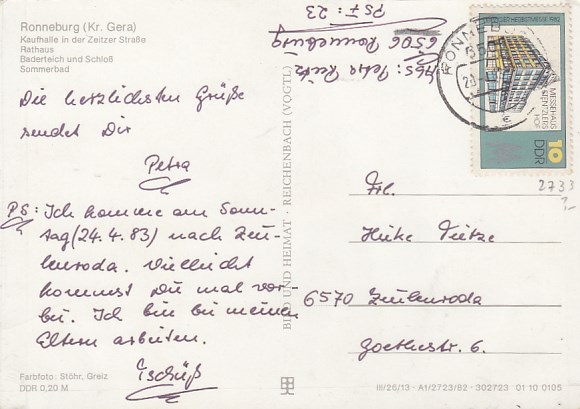 Ronneburg (Kr. Gera)
Kaufhalle in der Zeitzer Straße
Rathaus
Baderteich und Schloß
Sommerbad
Die herzlichsten Grüße
sendet Dir
Petra
PS: Ich komme am Sonn-
tag (24.4.83) nach Zeu-
lenroda. Vielleicht
kommst Du mal vor-
bei. Ich bin bei meinen
Eltern arbeiten.
Tschüß
Farbfoto: Stöhr, Greiz
DDR 0,20 M
BILD UND HEIMAT · REICHENBACH (VOGTL)
Abs: Petra
6506 Ronneburg
PSF: 23
RONNEB
HERBSTMESSE 1982
MESSEHAUS
HOF
DDR
10
2733
Frl.
Heike Tietze
6570 Zeulenroda
Goethestr. 6.
III/26/13 · A1/2723/82 · 302723 01 10 0105